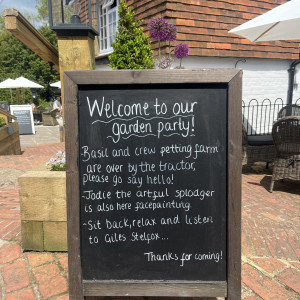 Welcome to our
garden party!
-Basil and crew petting farm
are over by the tractor,
please go say hello!
-Jodie the artful splodger
is also here facepainting
-Sit back, relax and listen
to Giles Stelfox...
Thanks for coming!